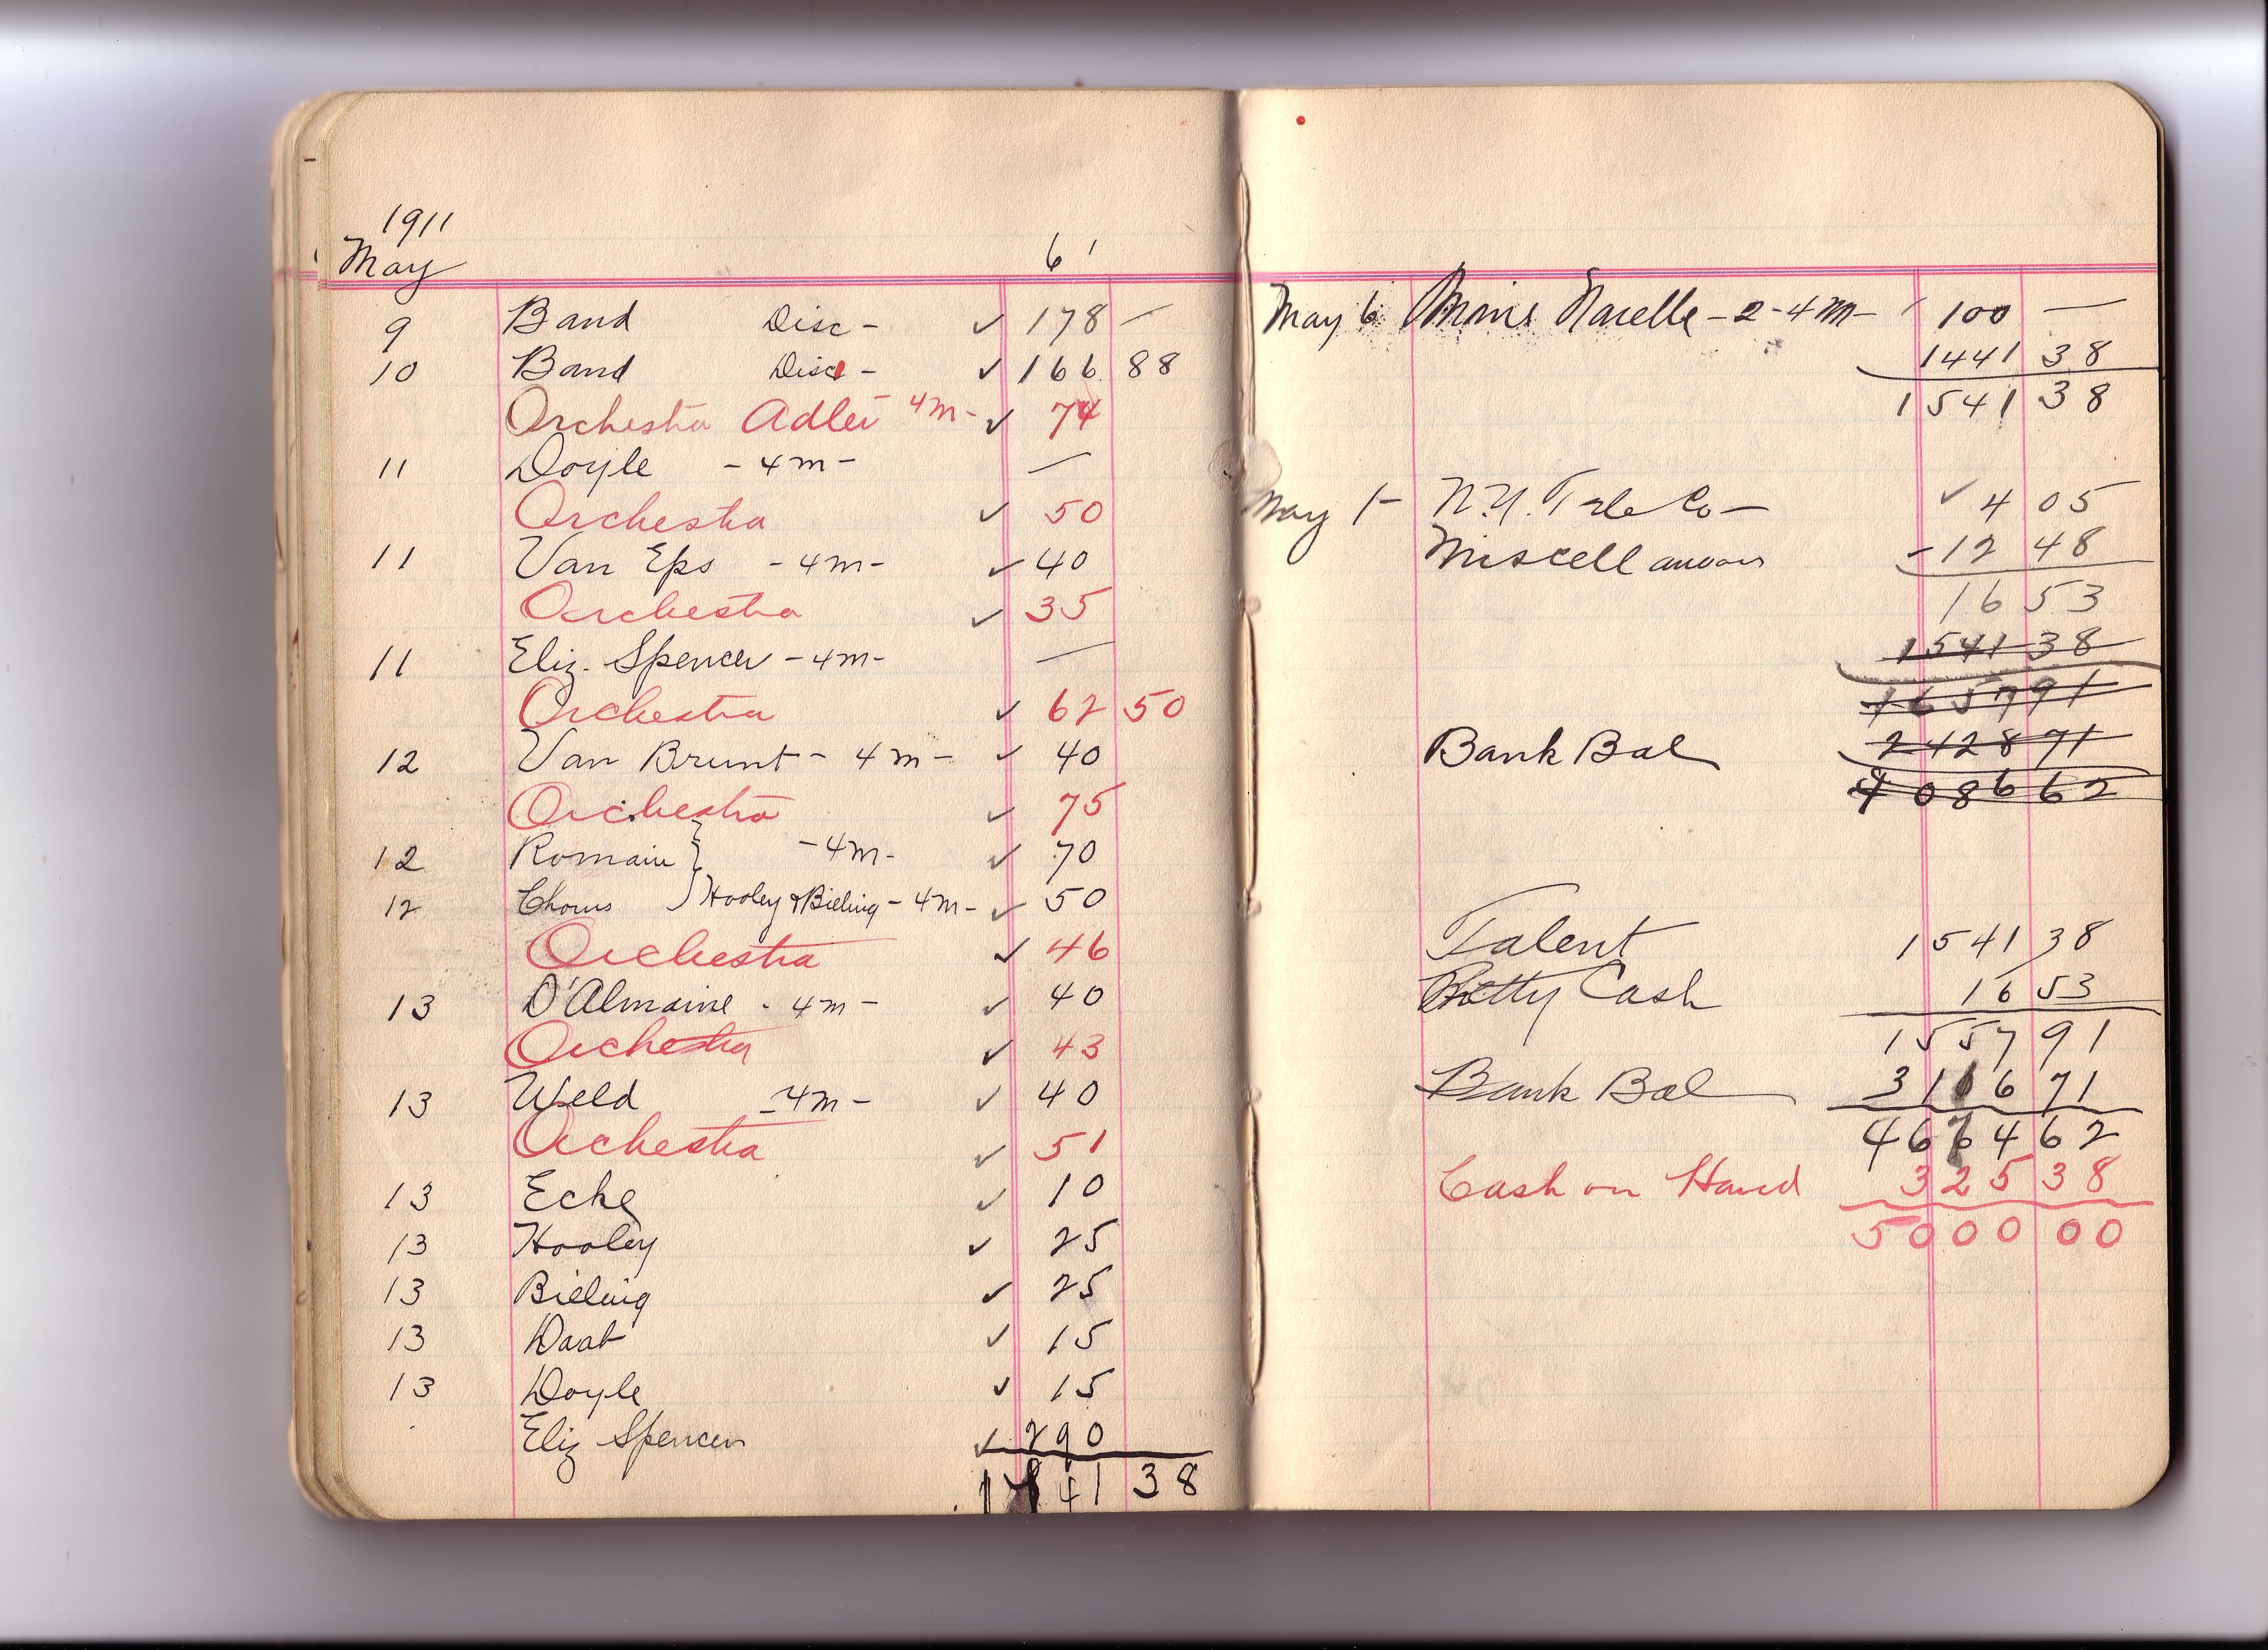 1911
May 6'
9 Band Disc - ✓ 178 —
10 Band Disc - ✓ 166 88
Orchestra Adler 4m- ✓ 74
11 Doyle - 4m - —
Orchestra ✓ 50
11 Van Eps - 4m - ✓ 40
Orchestra ✓ 35
11 Eliz. Spencer - 4m - —
Orchestra ✓ 62 50
12 Van Brunt - 4m - ✓ 40
Orchestra ✓ 75
12 Romain } - 4m - ✓ 70
12 Chorus } Hooley & Bieling - 4m - ✓ 50
Orchestra ✓ 46
13 D'Almaine - 4m - ✓ 40
Orchestra ✓ 43
13 Weld - 4m - ✓ 40
Orchestra ✓ 51
13 Ecke ✓ 10
13 Hooley ✓ 25
13 Bieling ✓ 25
13 Daab ✓ 15
13 Doyle ✓ 15
Eliz Spencer ✓ 290
41 38
May 6 Narelle - 2 - 4m - 100 —
1441 38
1541 38
May 1- N.Y. Tele Co - ✓ 4 05
Miscellaneous - 12 48
16 53
1541 38
1657 91
Bank Bal 2428 71
4086 62
Talent 1541 38
Petty Cash 16 53
1557 91
Bank Bal 3116 71
4674 62
Cash on Hand 325 38
5000 00